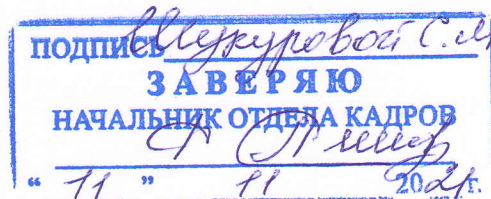 ПОДПИСЬ Шукуровой С. М
ЗАВЕРЯЮ
НАЧАЛЬНИК ОТДЕЛА КАДРОВ
“ 11 ” 11 2021 г.